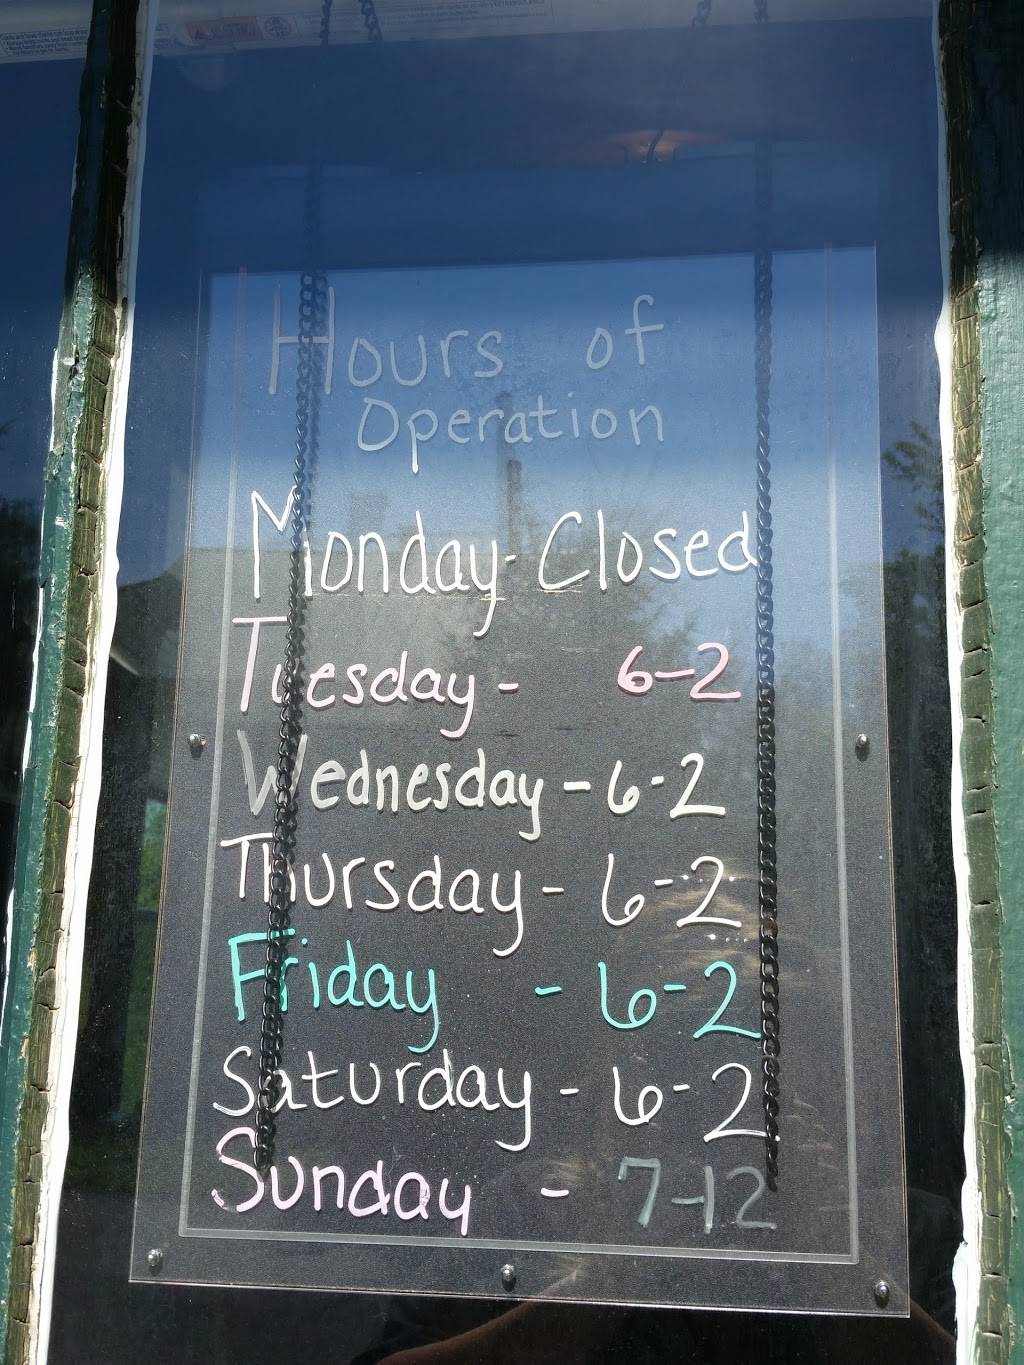 Hours of
Operation
Monday - Closed
Tuesday - 6-2
Wednesday - 6-2
Thursday - 6-2
Friday - 6-2
Saturday - 6-2
Sunday - 7-12